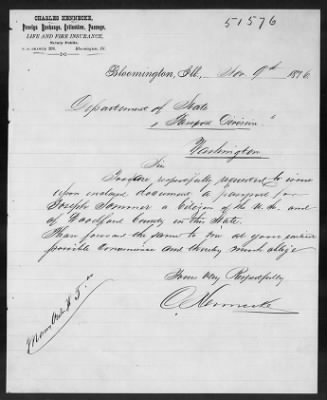 CHARLES HENNECKE,
Foreign Exchange, Collection, Passage,
LIFE AND FIRE INSURANCE,
Notary Public.
Bloomington, Ill.
51576
Bloomington, Ill., Nov. 9th 1876
Department of State
" Passport Division "
Washington
Sir
You are respectfully requested to issue
upon enclosed document a passport for
Joseph Sommer a Citizen of the U. S. and
of Woodford County in this State.
forward the same to at your earliest
possible convenience and thereby much oblige
Yours Very Respectfully
C. Hennecke